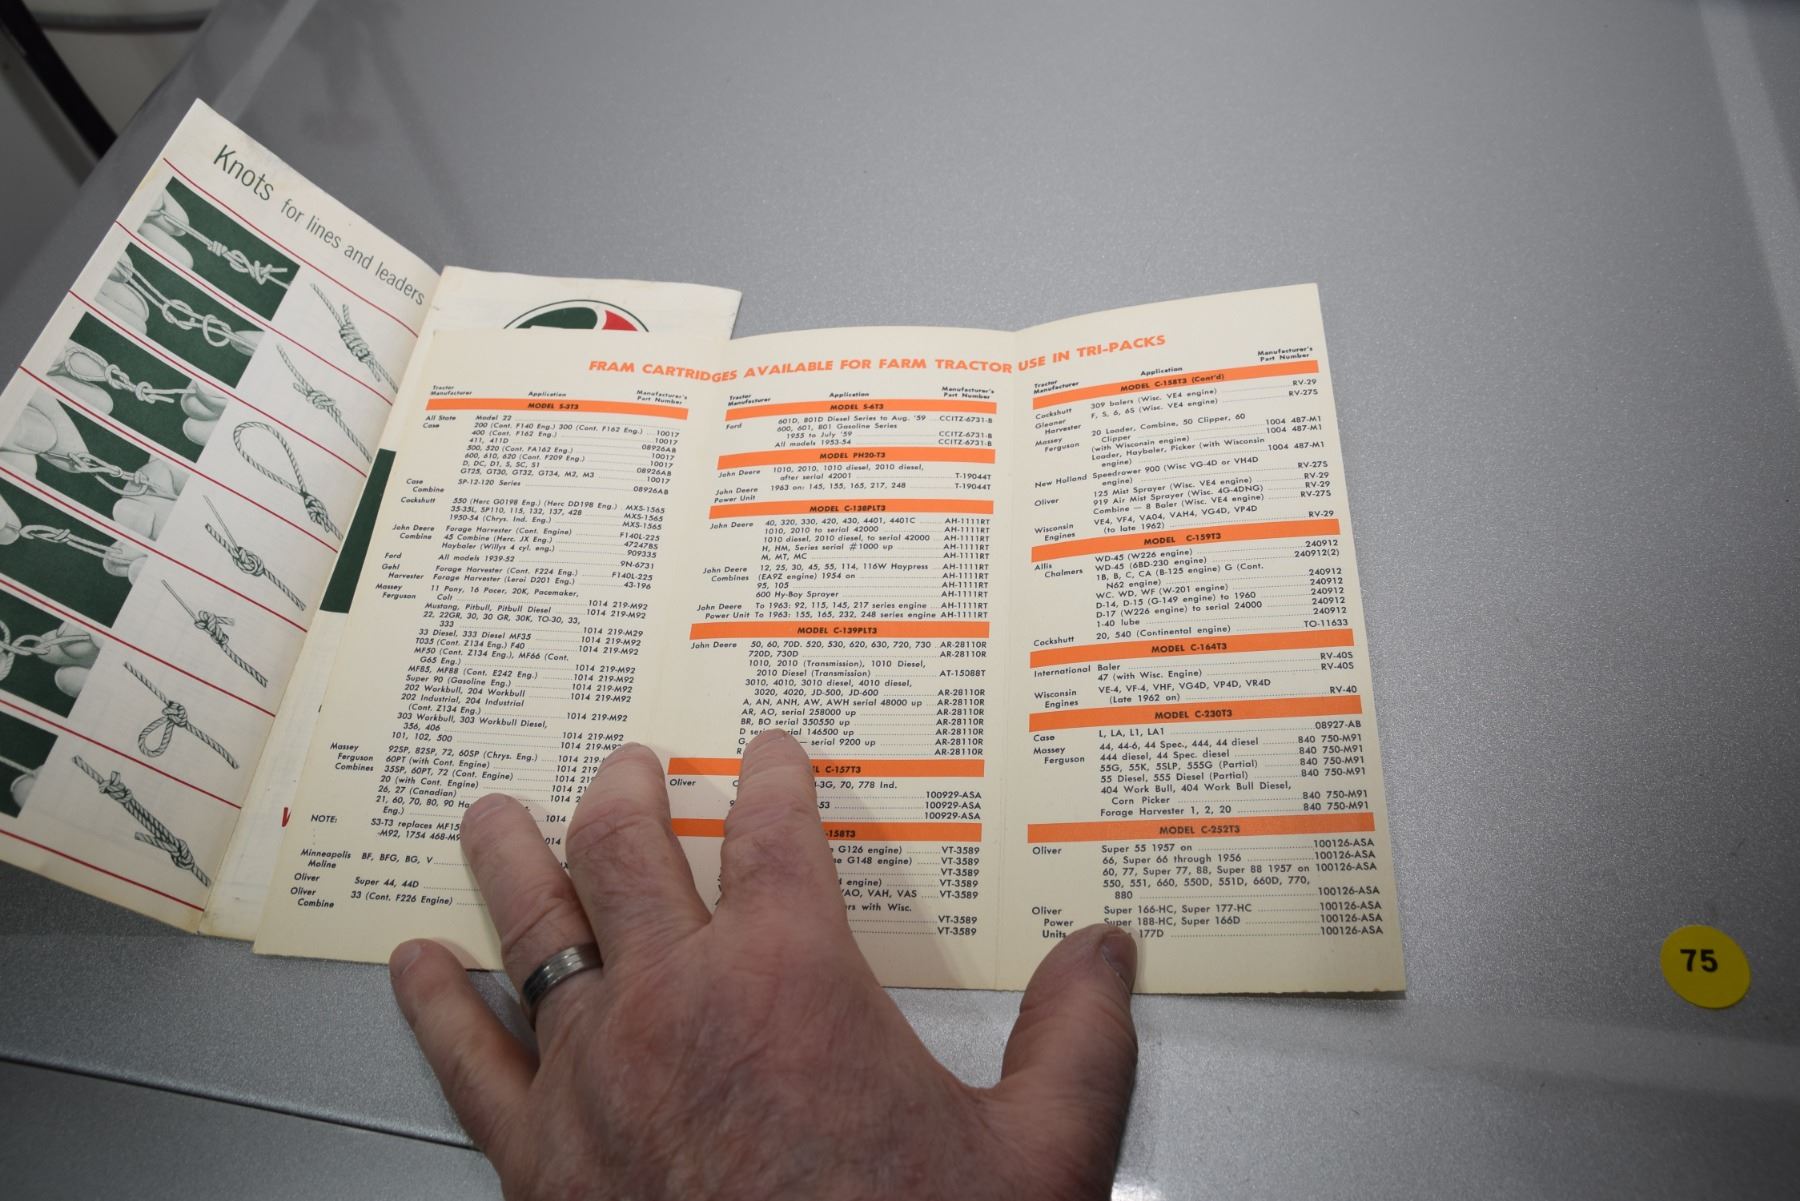 Knots for lines and leaders
FRAM CARTRIDGES AVAILABLE FOR FARM TRACTOR USE IN TRI-PACKS
Tractor Manufacturer Application Manufacturer's Part Number
MODEL S-3T3
All State Model 22
Case 200 (Cont. F140 Eng.) 300 (Cont. F162 Eng.) 10017
400 (Cont. F162 Eng.) 10017
411, 411D 08926AB
500, 520 (Cont. FA162 Eng.) 10017
600, 610, 620 (Cont. F209 Eng.) 08926AB
D, DC, D1, S, SC, S1 10017
GT25, GT30, GT32, GT34, M2, M3
Case Combine SP-12-120 Series 08926AB
Cockshutt 550 (Herc GO198 Eng.) (Herc DD198 Eng.) MXS-1565
35-35L, SP110, 115, 132, 137, 428 MXS-1565
1950-54 (Chrys. Ind. Eng.) MXS-1565
John Deere Combine Forage Harvester (Cont. Engine) F140L-225
45 Combine (Herc. JX Eng.) 472478S
Hayboler (Willys 4 cyl. eng.) 909335
Ford All models 1939-52 9N-6731
Gehl Harvester Forage Harvester (Cont. F224 Eng.) F140L-225
Forage Harvester (Leroi D201 Eng.) 43-196
Massey Ferguson 11 Pony, 16 Pacer, 20K, Pacemaker,
Colt 1014 219-M92
Mustang, Pitbull, Pitbull Diesel 1014 219-M92
22, 22GR, 30, 30 GR, 30K, TO-30, 33,
333 1014 219-M29
33 Diesel, 333 Diesel MF35 1014 219-M92
TO35 (Cont. Z134 Eng.) F40 1014 219-M92
MF50 (Cont. Z134 Eng.), MF66 (Cont.
G65 Eng.) 1014 219-M92
MF85, MF88 (Cont. E242 Eng.) 1014 219-M92
Super 90 (Gasoline Eng.) 1014 219-M92
202 Workbull, 204 Workbull 1014 219-M92
202 Industrial, 204 Industrial
(Cont. Z134 Eng.) 1014 219-M92
303 Workbull, 303 Workbull Diesel,
356, 406 1014 219-M92
101, 102, 500 1014 219-M92
Massey Ferguson Combines 92SP, 82SP, 72, 60SP (Chrys. Eng.) 1014 219
60PT (with Cont. Engine) 1014 219
35SP, 60PT, 72 (Cont. Engine) 1014 21
20 (with Cont. Engine) 1014 2
26, 27 (Canadian) 1014 2
21, 60, 70, 80, 90 Ha
Eng.) 1014
NOTE: S3-T3 replaces MF15
-M92, 1754 468-M9 1014
Minneapolis Moline BF, BFG, BG, V
Oliver Super 44, 44D
Oliver Combine 33 (Cont. F226 Engine)
Tractor Manufacturer Application Manufacturer's Part Number
MODEL S-6T3
Ford 601D, 801D Diesel Series to Aug. '59 CCITZ-6731-B
600, 601, 801 Gasoline Series
1955 to July '59 CCITZ-6731-B
All models 1953-54 CCITZ-6731-B
MODEL PH20-T3
John Deere 1010, 2010, 1010 diesel, 2010 diesel,
after serial 42001 T-19044T
John Deere Power Unit 1963 on: 145, 155, 165, 217, 248 T-19044T
MODEL C-138PLT3
John Deere 40, 320, 330, 420, 430, 4401, 4401C AH-1111RT
1010, 2010 to serial 42000 AH-1111RT
1010 diesel, 2010 diesel, to serial 42000 AH-1111RT
H, HM, Series serial #1000 up AH-1111RT
M, MT, MC AH-1111RT
John Deere Combines 12, 25, 30, 45, 55, 114, 116W Haypress AH-1111RT
(EA9Z engine) 1954 on AH-1111RT
95, 105 AH-1111RT
600 Hy-Boy Sprayer AH-1111RT
John Deere Power Unit To 1963: 92, 115, 145, 217 series engine AH-1111RT
To 1963: 155, 165, 232, 248 series engine AH-1111RT
MODEL C-139PLT3
John Deere 50, 60, 70D. 520, 530, 620, 630, 720, 730 AR-28110R
720D, 730D AR-28110R
1010, 2010 (Transmission), 1010 Diesel,
2010 Diesel (Transmission) AT-15088T
3010, 4010, 3010 diesel, 4010 diesel,
3020, 4020, JD-500, JD-600 AR-28110R
A, AN, ANH, AW, AWH serial 48000 up AR-28110R
AR, AO, serial 258000 up AR-28110R
BR, BO serial 350550 up AR-28110R
D serial 146500 up AR-28110R
G — serial 9200 up AR-28110R
R AR-28110R
L C-157T3
Oliver -3G, 70, 778 Ind.
100929-ASA
-53 100929-ASA
100929-ASA
-158T3
G126 engine) VT-3589
se G148 engine) VT-3589
VT-3589
4 engine) VT-3589
VAO, VAH, VAS VT-3589
ors with Wisc.
VT-3589
VT-3589
Tractor Manufacturer Application Manufacturer's Part Number
MODEL C-158T3 (Cont'd)
Cockshutt 309 balers (Wisc. VE4 engine) RV-29
Gleaner Harvester F, S, 6, 6S (Wisc. VE4 engine) RV-27S
Massey Ferguson 20 Loader, Combine, 50 Clipper, 60
Clipper 1004 487-M1
(with Wisconsin engine) 1004 487-M1
Loader, Haybaler, Picker (with Wisconsin
engine) 1004 487-M1
New Holland Speedrower 900 (Wisc VG-4D or VH4D
engine) RV-27S
Oliver 125 Mist Sprayer (Wisc. VE4 engine) RV-29
919 Air Mist Sprayer (Wisc. 4G-4DNG) RV-29
Combine — 8 Baler (Wisc. VE4 engine) RV-27S
Wisconsin Engines VE4, VF4, VA04, VAH4, VG4D, VP4D
(to late 1962) RV-29
MODEL C-159T3
Allis Chalmers WD-45 (W226 engine) 240912
WD-45 (6BD-230 engine) 240912(2)
1B, B, C, CA (B-125 engine) G (Cont.
N62 engine) 240912
WC. WD, WF (W-201 engine) 240912
D-14, D-15 (G-149 engine) to 1960 240912
D-17 (W226 engine) to serial 24000 240912
1-40 lube 240912
Cockshutt 20, 540 (Continental engine) TO-11633
MODEL C-164T3
International Baler RV-40S
47 (with Wisc. Engine) RV-40S
Wisconsin Engines VE-4, VF-4, VHF, VG4D, VP4D, VR4D
(Late 1962 on) RV-40
MODEL C-230T3
Case L, LA, L1, LA1 08927-AB
Massey Ferguson 44, 44-6, 44 Spec., 444, 44 diesel 840 750-M91
444 diesel, 44 Spec. diesel 840 750-M91
55G, 55K, 55LP, 555G (Partial) 840 750-M91
55 Diesel, 555 Diesel (Partial) 840 750-M91
404 Work Bull, 404 Work Bull Diesel,
Corn Picker 840 750-M91
Forage Harvester 1, 2, 20 840 750-M91
MODEL C-252T3
Oliver Super 55 1957 on 100126-ASA
66, Super 66 through 1956 100126-ASA
60, 77, Super 77, 88, Super 88 1957 on 100126-ASA
550, 551, 660, 550D, 551D, 660D, 770,
880 100126-ASA
Oliver Power Units Super 166-HC, Super 177-HC 100126-ASA
Super 188-HC, Super 166D 100126-ASA
177D 100126-ASA
75